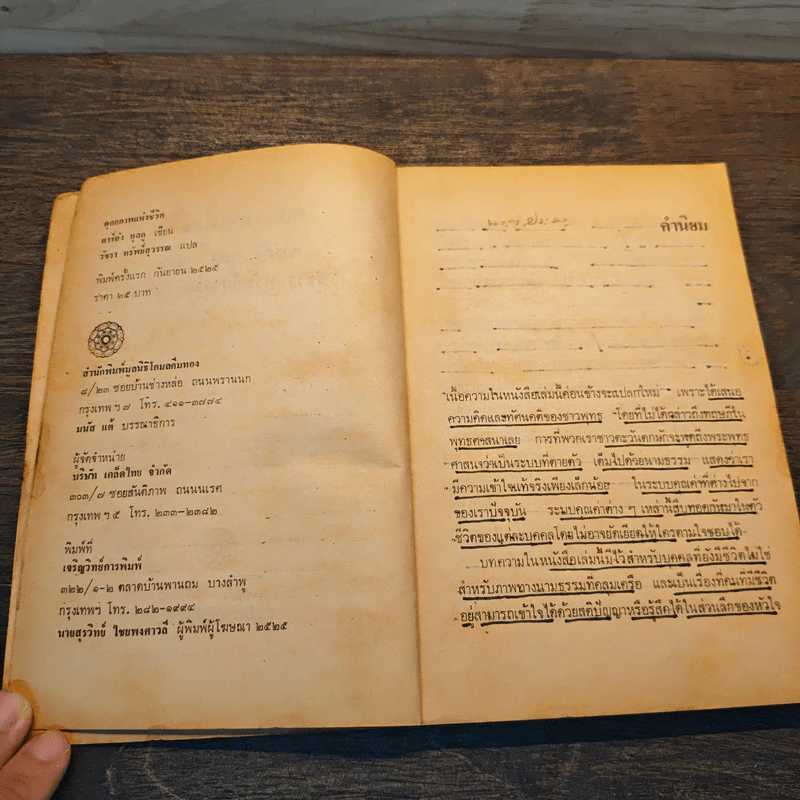 ดุลยภาพแห่งชีวิต
ตาร์ถัง ตุลกู เขียน
วัชรา ทรัพย์สุวรรณ แปล
พิมพ์ครั้งแรก กันยายน ๒๕๒๕
ราคา ๒๕ บาท
สำนักพิมพ์มูลนิธิโกมลคีมทอง
๘/๒๓ ซอยบ้านช่างหล่อ ถนนพรานนก
กรุงเทพ ฯ ๗ โทร. ๔๑๑-๓๗๗๔
มนัส แต้ บรรณาธิการ
ผู้จัดจำหน่าย
บริษัท เคล็ดไทย จำกัด
๓๐๓/๗ ซอยสันติภาพ ถนนนเรศ
กรุงเทพ ฯ ๕ โทร. ๒๓๓-๒๓๘๒
พิมพ์ที่
เจริญวิทย์การพิมพ์
๓๒๒/๑-๒ ตลาดบ้านพานถม บางลำพู
กรุงเทพฯ โทร. ๒๘๒-๑๙๙๔
นายสุรวิทย์ ไชยพงศาวลี ผู้พิมพ์ผู้โฆษณา ๒๕๒๕
คำนิยม
เนื้อความในหนังสือเล่มนี้ค่อนข้างจะแปลกใหม่ เพราะได้เสนอ
ความคิดและทัศนคติของชาวพุทธ โดยที่ไม่ได้กล่าวถึงทฤษฎีใน
พุทธศาสนาเลย การที่พวกเราชาวตะวันตกมักจะพูดถึงพระพุทธ
ศาสนาว่าเป็นระบบที่ตายตัว เต็มไปด้วยนามธรรม แสดงว่าเรา
มีความเข้าใจแท้จริงเพียงเล็กน้อย ในระบบคุณค่าที่ต่างไปจาก
ของเราปัจจุบัน ระบบคุณค่าต่าง ๆ เหล่านี้สืบทอดกันมาในตัว
ชีวิตของแต่ละบุคคลโดยไม่อาจยัดเยียดให้ใครตามใจชอบได้
บทความในหนังสือเล่มนี้มีไว้สำหรับบุคคลที่ยังมีชีวิตไม่ใช่
สำหรับภาพทางนามธรรมที่คลุมเครือ และเป็นเรื่องที่คนที่มีชีวิต
อยู่สามารถเข้าใจได้ด้วยสติปัญญาหรือรู้สึกได้ในส่วนลึกของหัวใจ